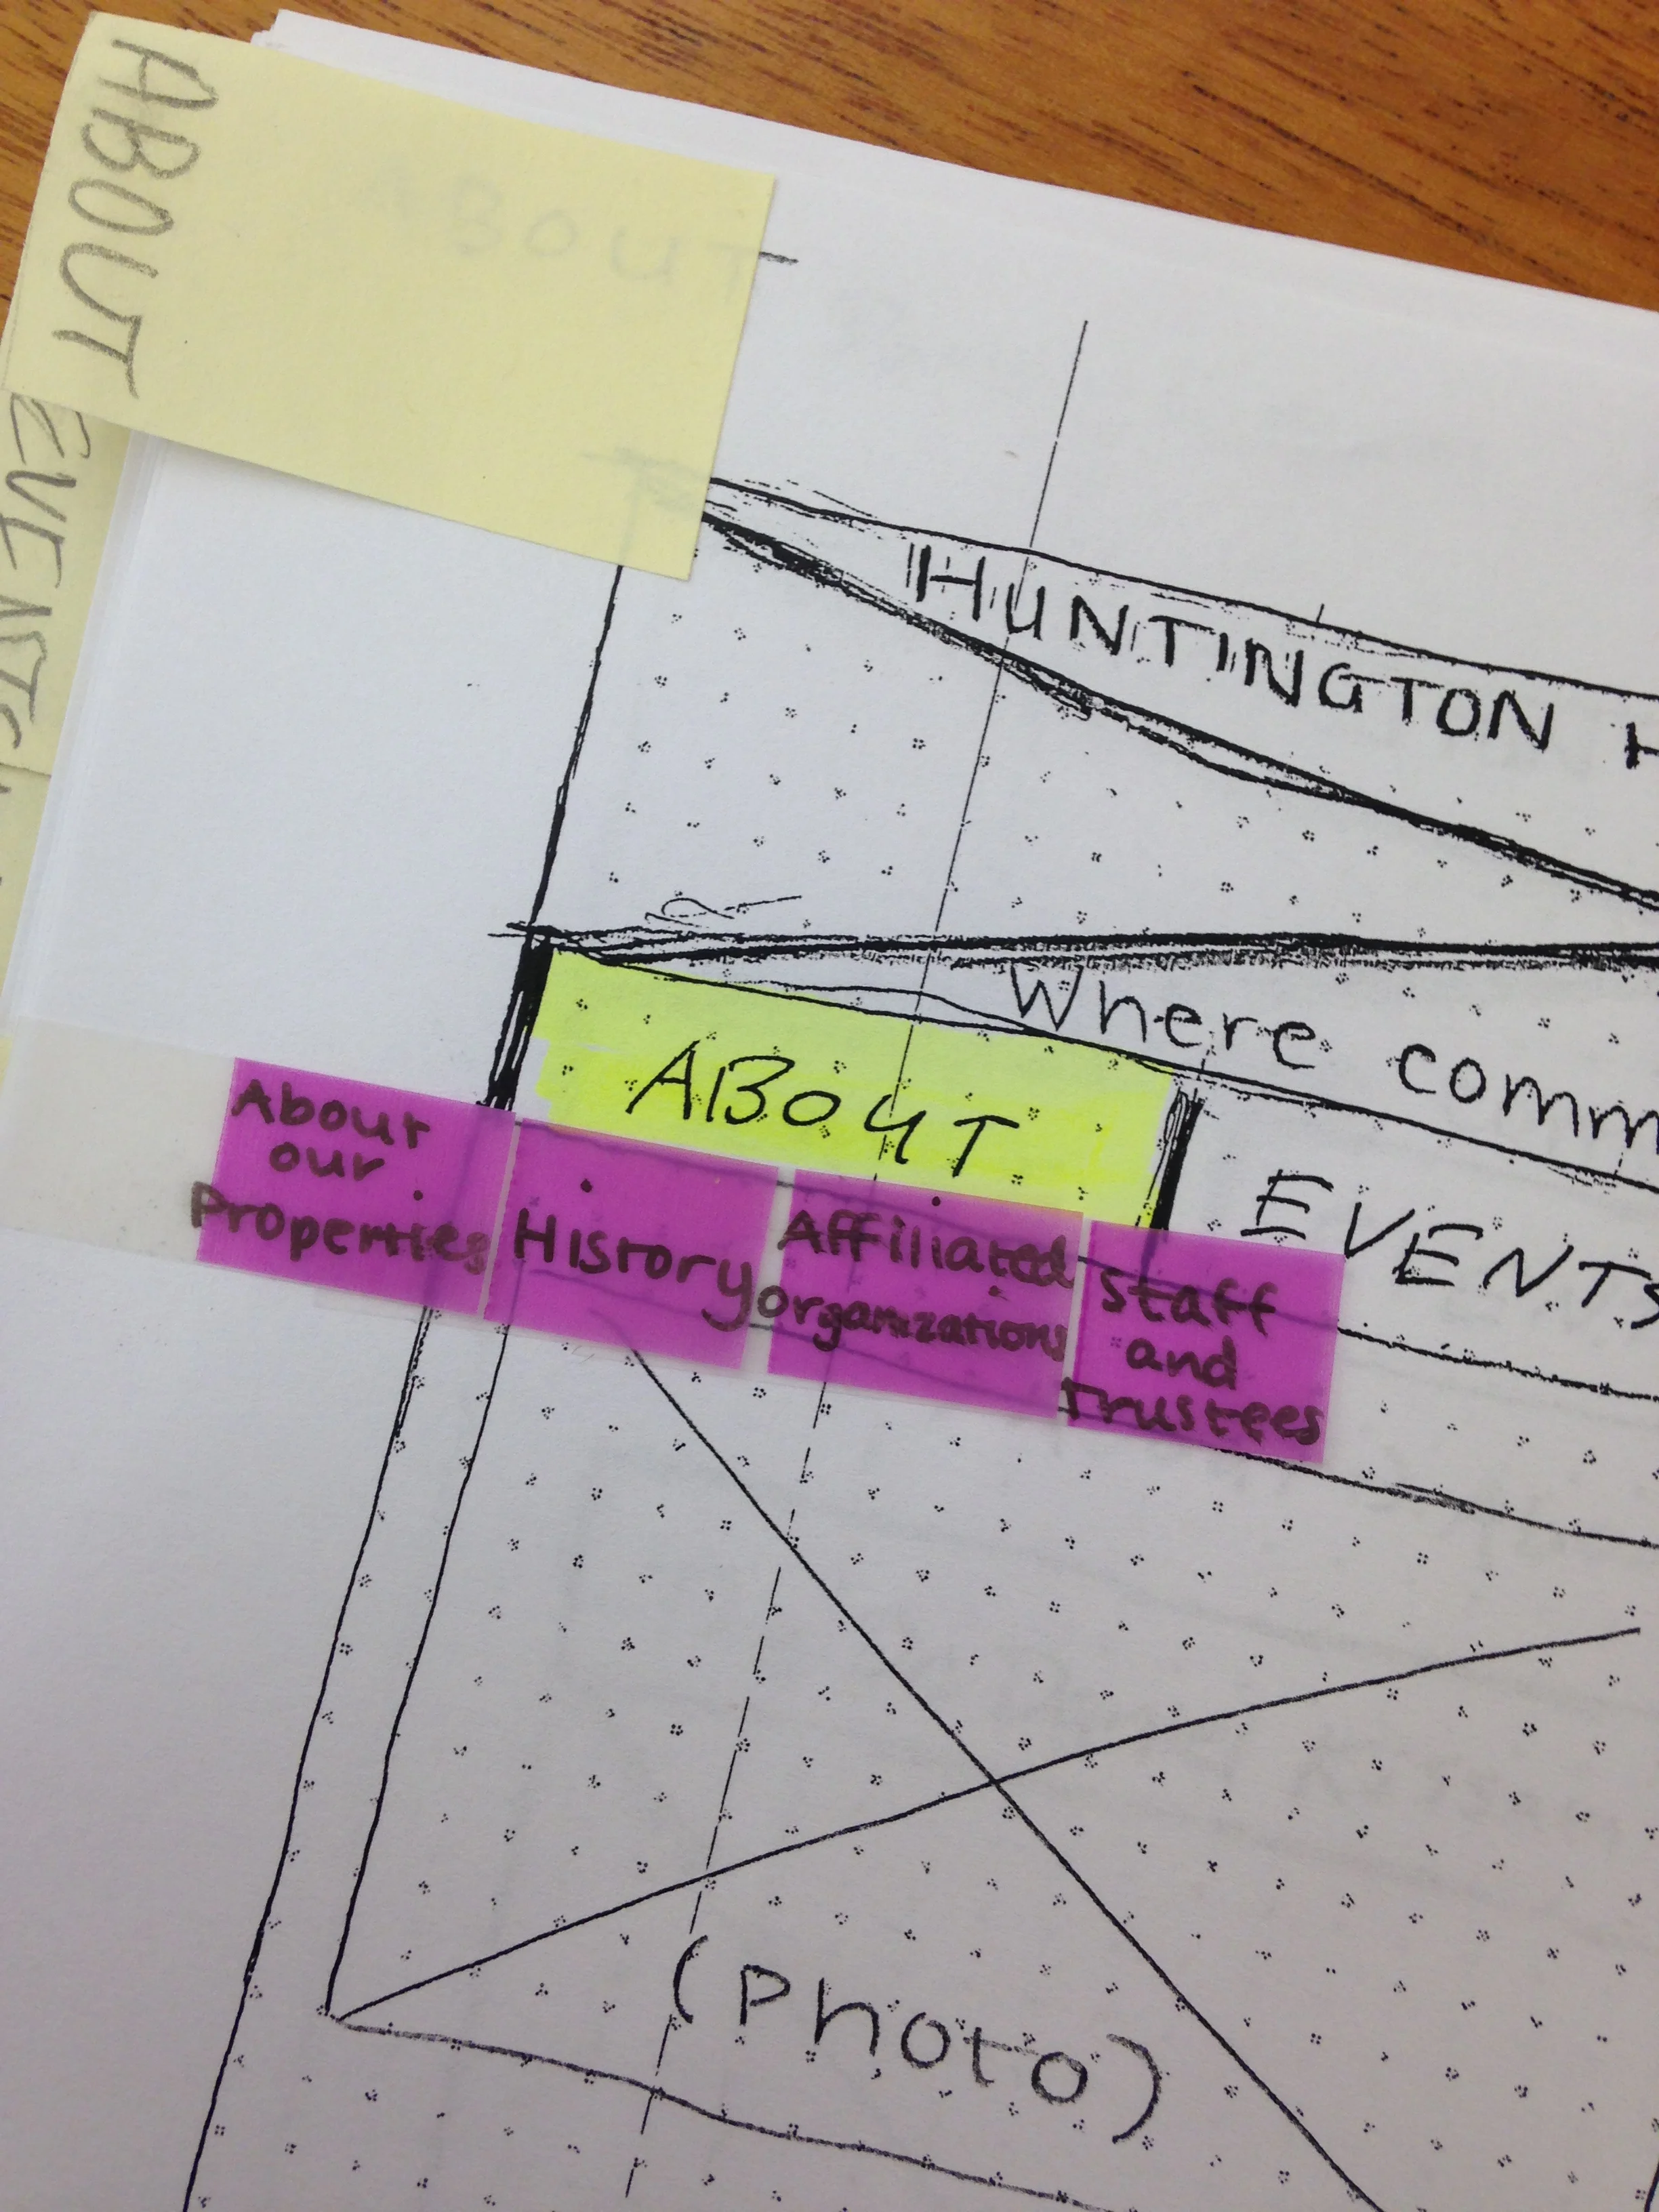 ABOUT
EVENTS
ABOUT
HUNTINGTON H
Where comm
ABOUT
EVENTS
About
our
Properties
History
Affiliated
organizations
Staff
and
Trustees
(Photo)